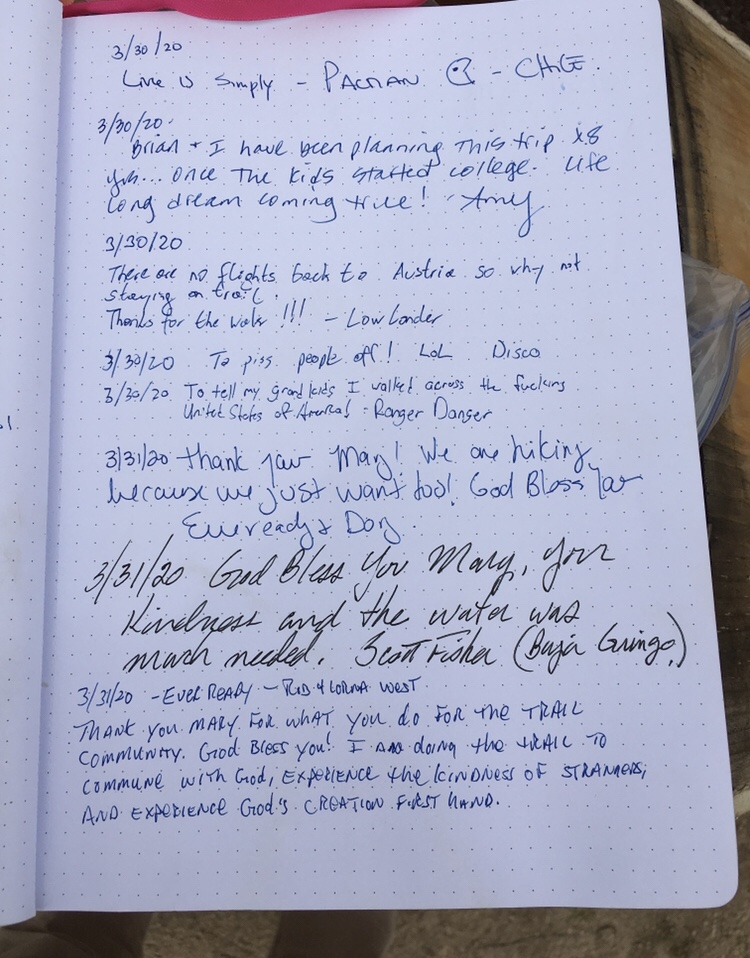 3/30/20
Live is simply - PACMAN - CHILE.
3/30/20.
Brian + I have been planning This trip x8
yrs... once The kids started college. Life
long dream coming true! Amy
3/30/20
There are no flights back to Austria so why not
staying on trail.
Thanks for the water !!! - Lowlander
3/30/20 To piss people off! LoL Disco
3/30/20 To tell my grandkids I walked across the fucking
United States of America! - Ranger Danger
3/31/20 Thank You Mary! We are hiking
because we just want too! God Bless You
Eveready & Dog
3/31/20 God Bless You Mary, your
Kindness and the water was
much needed. Scott Fisher (Baja Gringo)
3/31/20 - EVER READY - ROD & LORNA WEST
THANK YOU MARY FOR WHAT YOU do FOR THE TRAIL
COMMUNITY. God BLESS you! I AM doing the TRAIL TO
COMMUNE WITH God, EXPERIENCE the KINDNESS OF STRANGERS,
AND EXPERIENCE God's CREATION FIRST HAND.